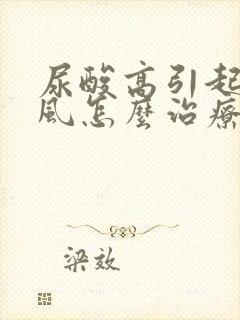 尿酸高引起
風怎麼治療
梁效